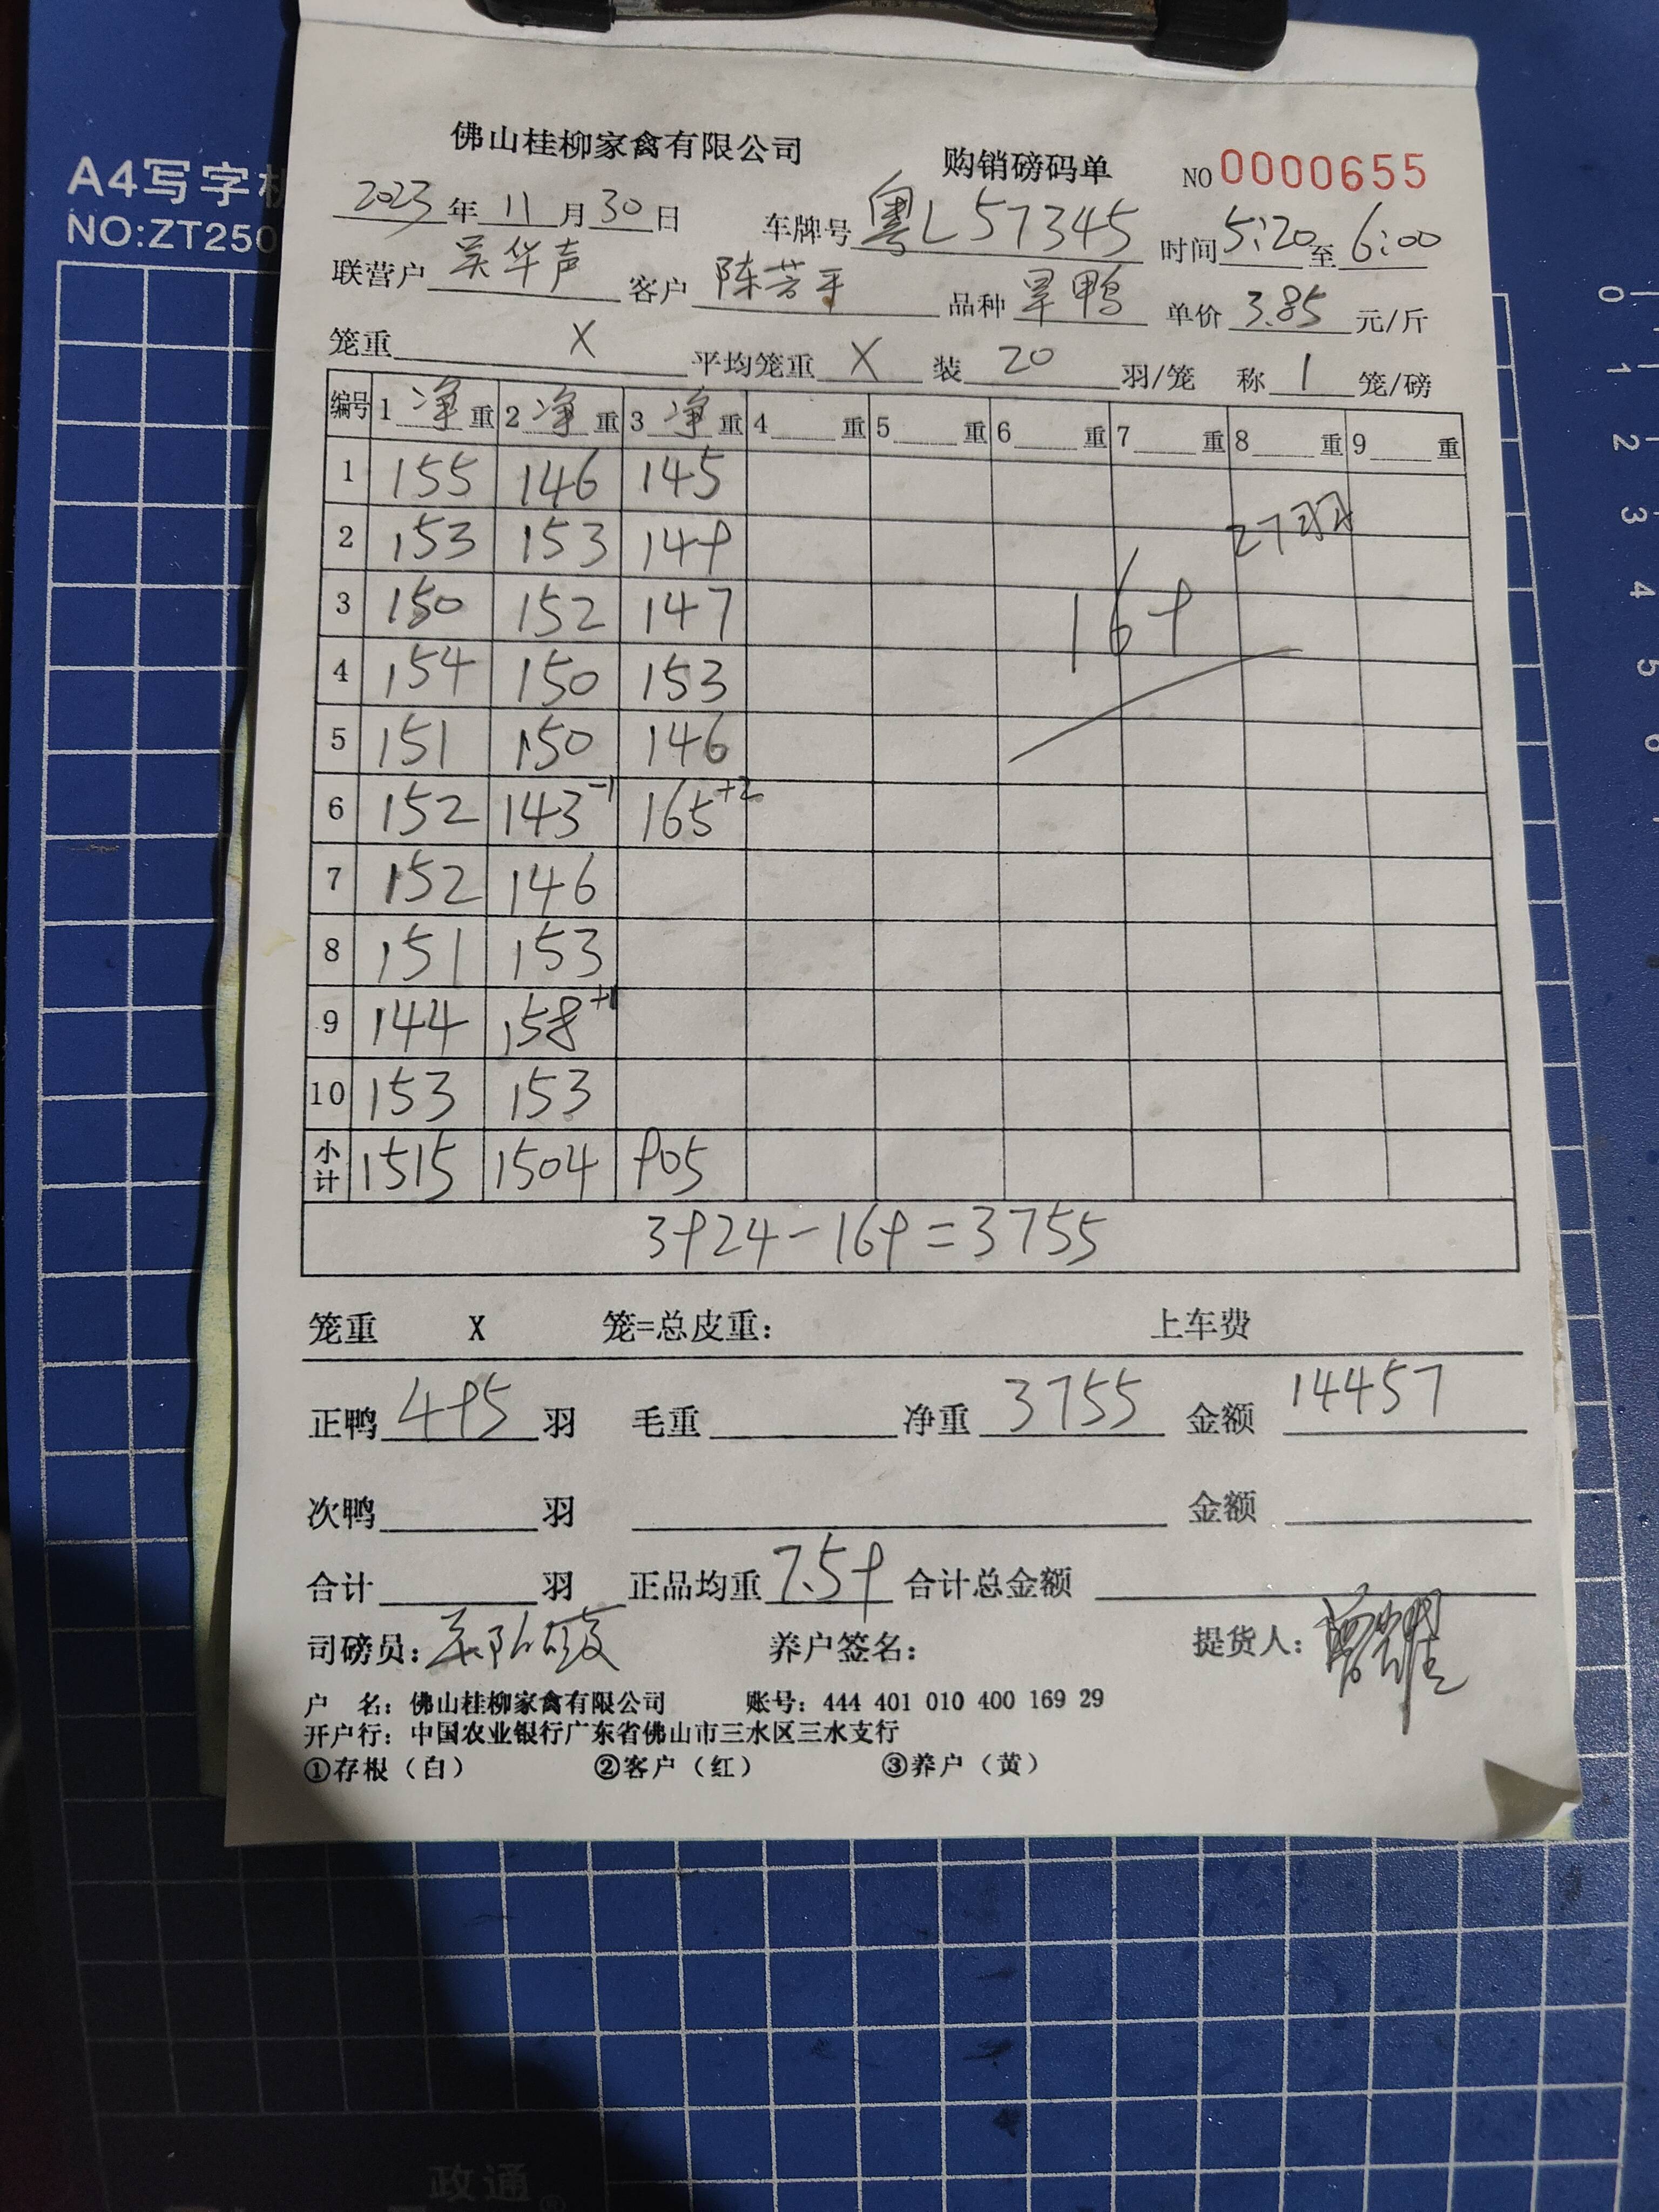 A4写字板
NO:ZT250
佛山桂柳家禽有限公司 购销磅码单 NO 0000655
2023年11月30日 车牌号 粤L57345 时间5:20至6:00
联营户 吴华声 客户 陈芳平 品种 旱鸭 单价 3.85 元/斤
笼重 X 平均笼重 X 装 20 羽/笼 称 1 笼/磅
编号 1 净 重 2 净 重 3 净 重 4 重 5 重 6 重 7 重 8 重 9 重
1 155 146 145
2 153 153 149 27羽
3 150 152 147 169
4 154 150 153
5 151 150 146
6 152 143-1 165+2
7 152 146
8 151 153
9 144 158+1
10 153 153
小计 1515 1504 905
3924-169=3755
笼重 X 笼=总皮重: 上车费
正鸭 495 羽 毛重 净重 3755 金额 14457
次鸭 羽 金额
合计 羽 正品均重 7.59 合计总金额
司磅员: 养户签名: 提货人:
户 名: 佛山桂柳家禽有限公司 账号: 444 401 010 400 169 29
开户行: 中国农业银行广东省佛山市三水区三水支行
①存根(白) ②客户(红) ③养户(黄)
0
1
2
3
4
5
6
政通